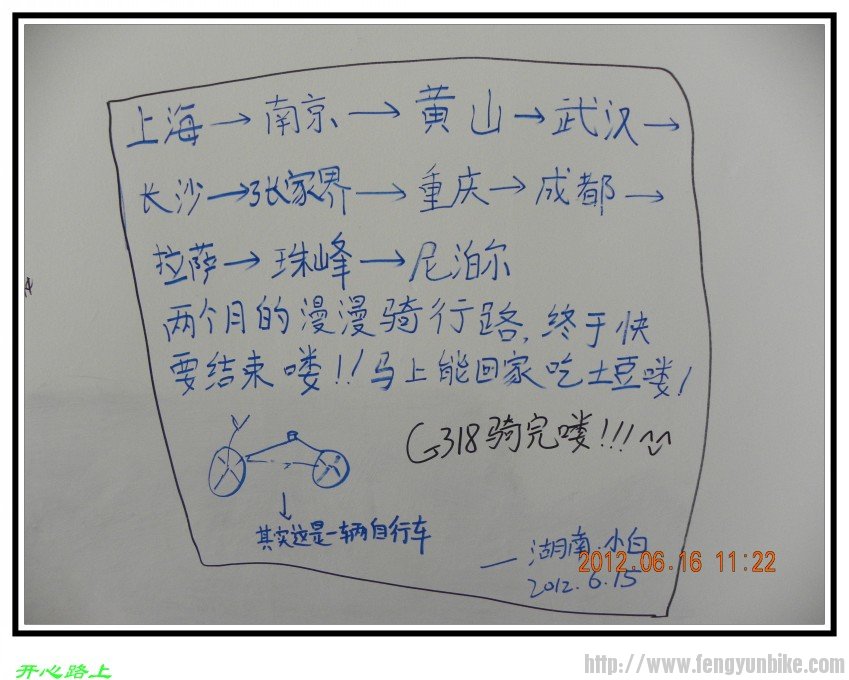 上海→南京→黄山→武汉→
长沙→张家界→重庆→成都→
拉萨→珠峰→尼泊尔
两个月的漫漫骑行路,终于快
要结束喽!!马上能回家吃土豆喽!
G318骑完喽!!!
其实这是一辆自行车
—湖南·小白
2012.06.16 11:22
2012.6.15
开心路上
http://www.fengyunbike.com